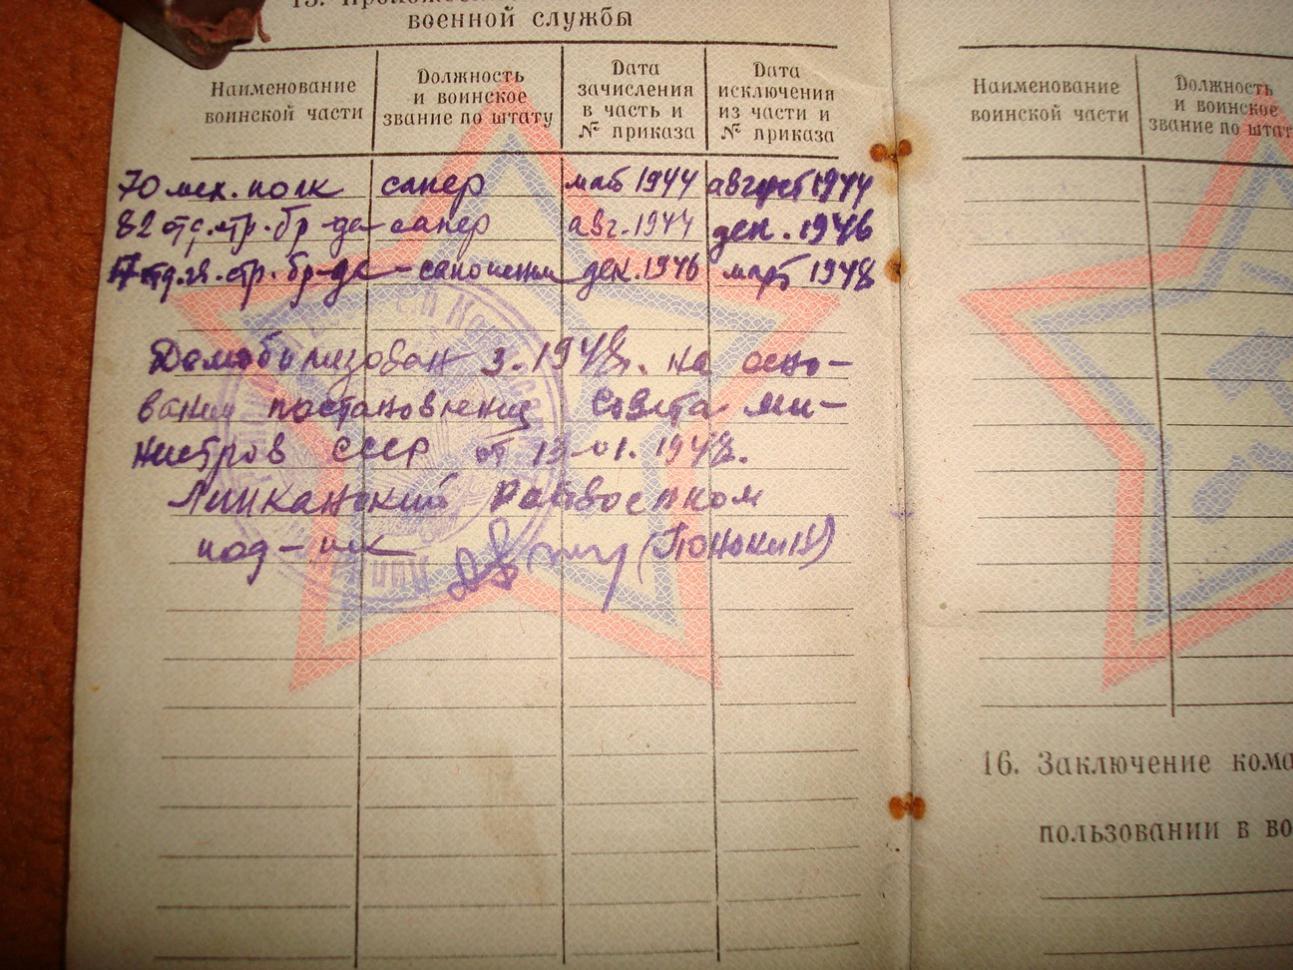 военной службы
Наименование воинской части
Должность и воинское звание по штату
Дата зачисления в часть и № приказа
Дата исключения из части и № приказа
70 мех. полк сапер май 1944 август 1944
82 отд. стр. бр-да - сапер авг. 1944 дек. 1946
отд. гв. стр. бр-да - дек. 1946 март 1948
Демобилизован 3. 1948. на осно-
вании постановления Совета ми-
нистров СССР от 13-01. 1948.
Липканский Райвоенком
под-пк
Наименование воинской части
Должность и воинское звание по штат
16. Заключение кома
пользовании в во